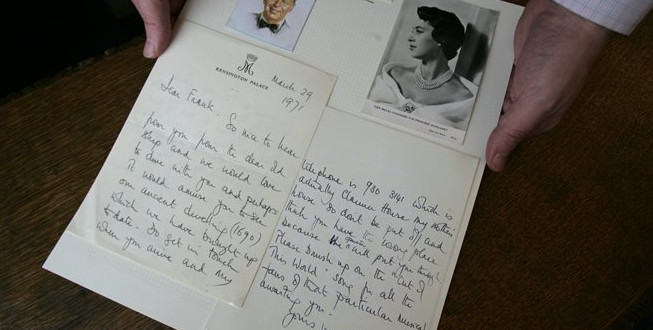 KENSINGTON PALACE
March 29
1971
Dear Frank. So nice to hear
from you from the dear old
ship and we would love
to dine with you and perhaps
it would amuse you to see
our ancient dwelling (1690)
which we have brought up
to date. So get in touch
when you arrive and my
telephone is 930 3141 which is
actually Clarence House my mother's
house so don't be put off and
think you have the wrong place
because they will put you through
Please brush up on the "Out of
This World" song for all the
fans of that particular musical
awaiting you.
Yours